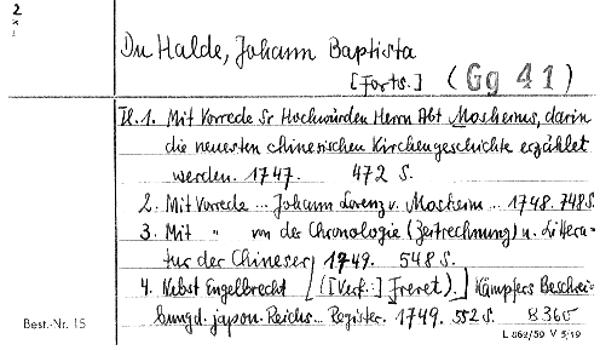 2
Du Halde, Johann Baptista
[Forts.] (Gg 41)
Tl. 1. Mit Vorrede Sr Hochwürden Herrn Abt Mosheims, darin
die neuesten chinesischen Kirchengeschichte erzählet
werden. 1747. 472 S.
2. Mit Vorrede ... Johann Lorenz v. Mosheim ... 1748. 748 S.
3. Mit " von der Chronologie (Zeitrechnung) u. Littera-
tur der Chineser 1749. 548 S.
4. Nebst Engelbrecht [([Verf.:] Freret).] Kämpfers Beschrei-
bung d. japon. Reichs ... Register. 1749. 552 S. 8360
Best.-Nr. 15
L 862/59 V 5/19